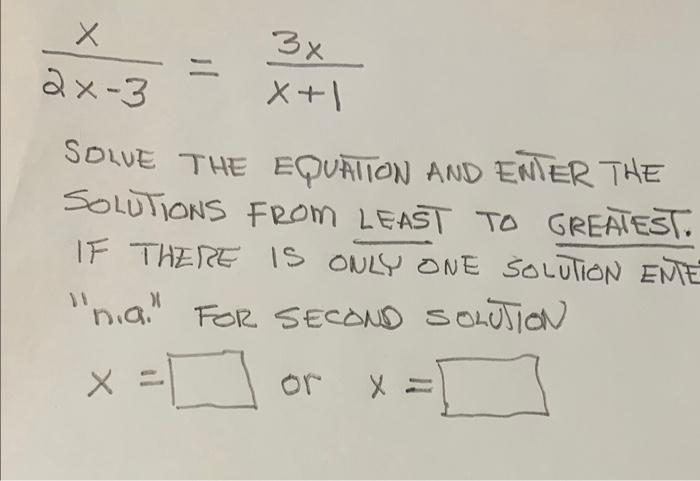 x/(2x-3) = 3x/(x+1)
SOLVE THE EQUATION AND ENTER THE
SOLUTIONS FROM LEAST TO GREATEST.
IF THERE IS ONLY ONE SOLUTION ENTE
"n.a." FOR SECOND SOLUTION
x = or x =